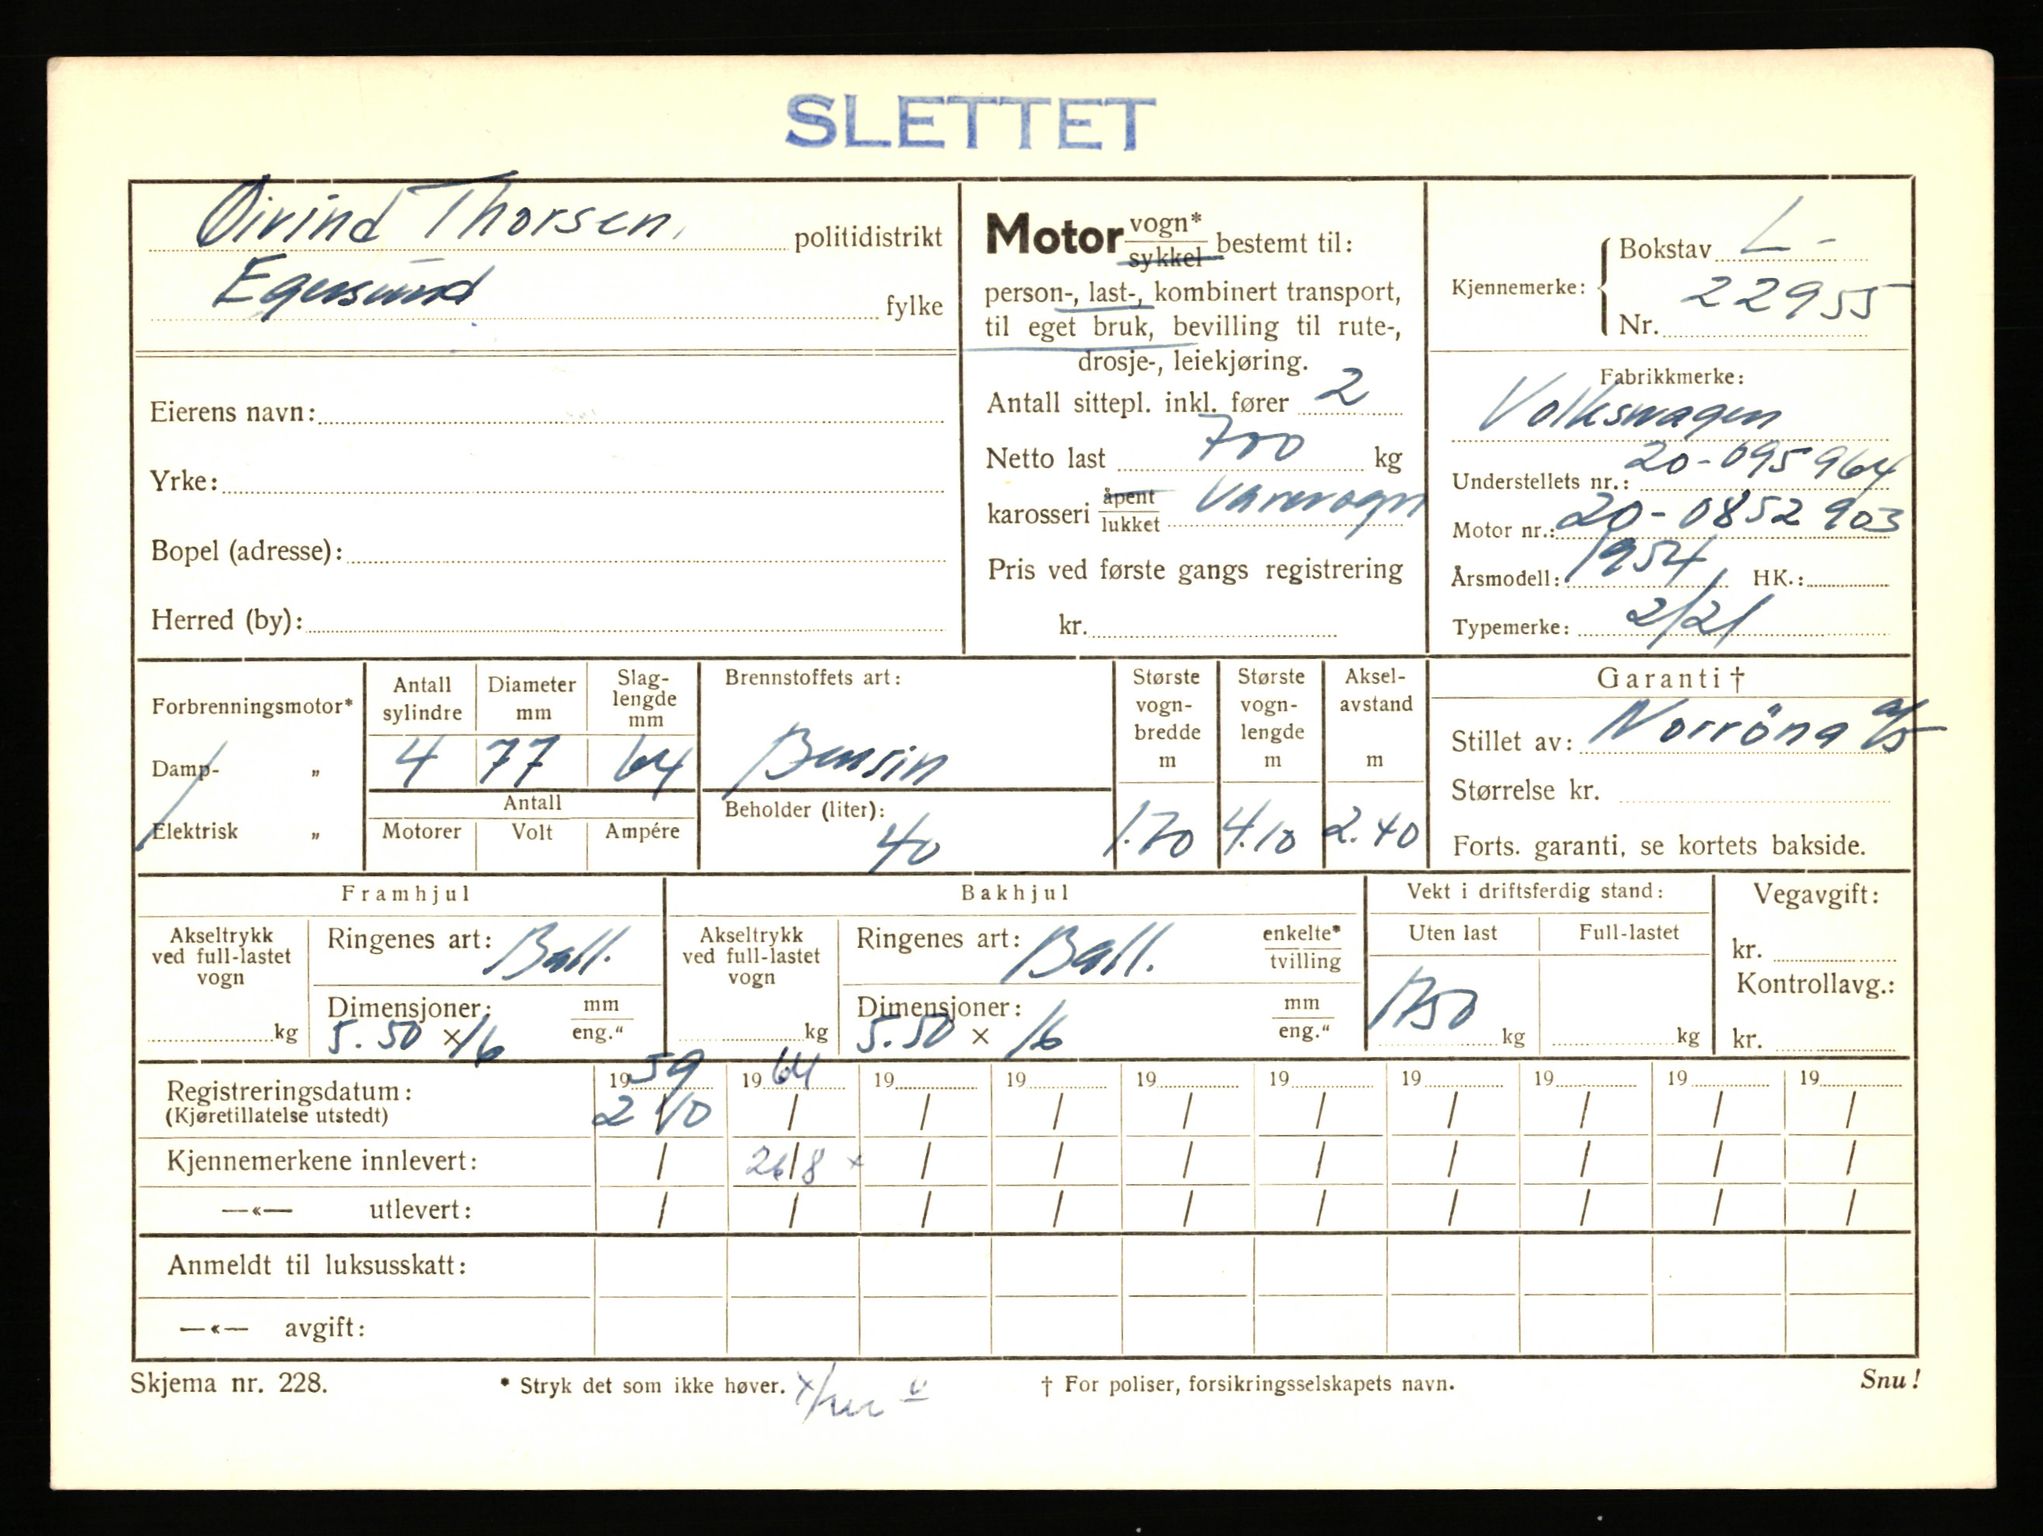 SLETTET
Øivind Thorsen, politidistrikt
Egersund fylke
Eierens navn:
Yrke:
Bopel (adresse):
Herred (by):
Motor vogn* sykkel bestemt til:
person-, last-, kombinert transport,
til eget bruk, bevilling til rute-,
drosje-, leiekjøring.
Antall sittepl. inkl. fører 2
Netto last 700 kg
karosseri åpent lukket Varevogn
Pris ved første gangs registrering
kr.
Kjennemerke: Bokstav L-
Nr. 22955
Fabrikkmerke:
Volkswagen
Understellets nr.: 20-095964
Motor nr.: 20-0852903
Årsmodell: 1954 HK.:
Typemerke: 2/21
Forbrenningsmotor*
Damp- „
Elektrisk „
Antall sylindre
4
Diameter mm
77
Slag-
lengde
mm
64
Antall
Motorer Volt Ampére
Brennstoffets art:
Bensin
Beholder (liter):
40
Største
vogn-
bredde
m
1.70
Største
vogn-
lengde
m
4.10
Aksel-
avstand
m
2.40
Garanti †
Stillet av: Norröna a/s
Størrelse kr.
Forts. garanti, se kortets bakside.
Framhjul
Akseltrykk
ved full-lastet
vogn
kg
Ringenes art: Ball.
Dimensjoner: mm eng."
5.50 x 16
Bakhjul
Akseltrykk
ved full-lastet
vogn
kg
Ringenes art: Ball. enkelte* tvilling
Dimensjoner: mm eng."
5.50 x 16
Vekt i driftsferdig stand:
Uten last Full-lastet
1750 kg kg
Vegavgift:
kr.
Kontrollavg.:
kr.
Registreringsdatum: 1959 1964 19 19 19 19 19 19 19 19
(Kjøretillatelse utstedt) 2/10 / / / / / / / / /
Kjennemerkene innlevert: / 26/8 x / / / / / / / /
—«— utlevert: / / / / / / / / / /
Anmeldt til luksusskatt:
—«— avgift:
Skjema nr. 228. * Stryk det som ikke høver. † For poliser, forsikringsselskapets navn. Snu!